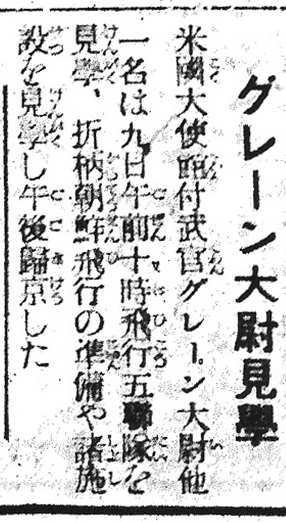 グレーン大尉見學
米國大使館付武官グレーン大尉他
一名は九日午前十時飛行五聯隊を
見學、折柄朝鮮飛行の準備や諸施
設を見學し午後歸京した